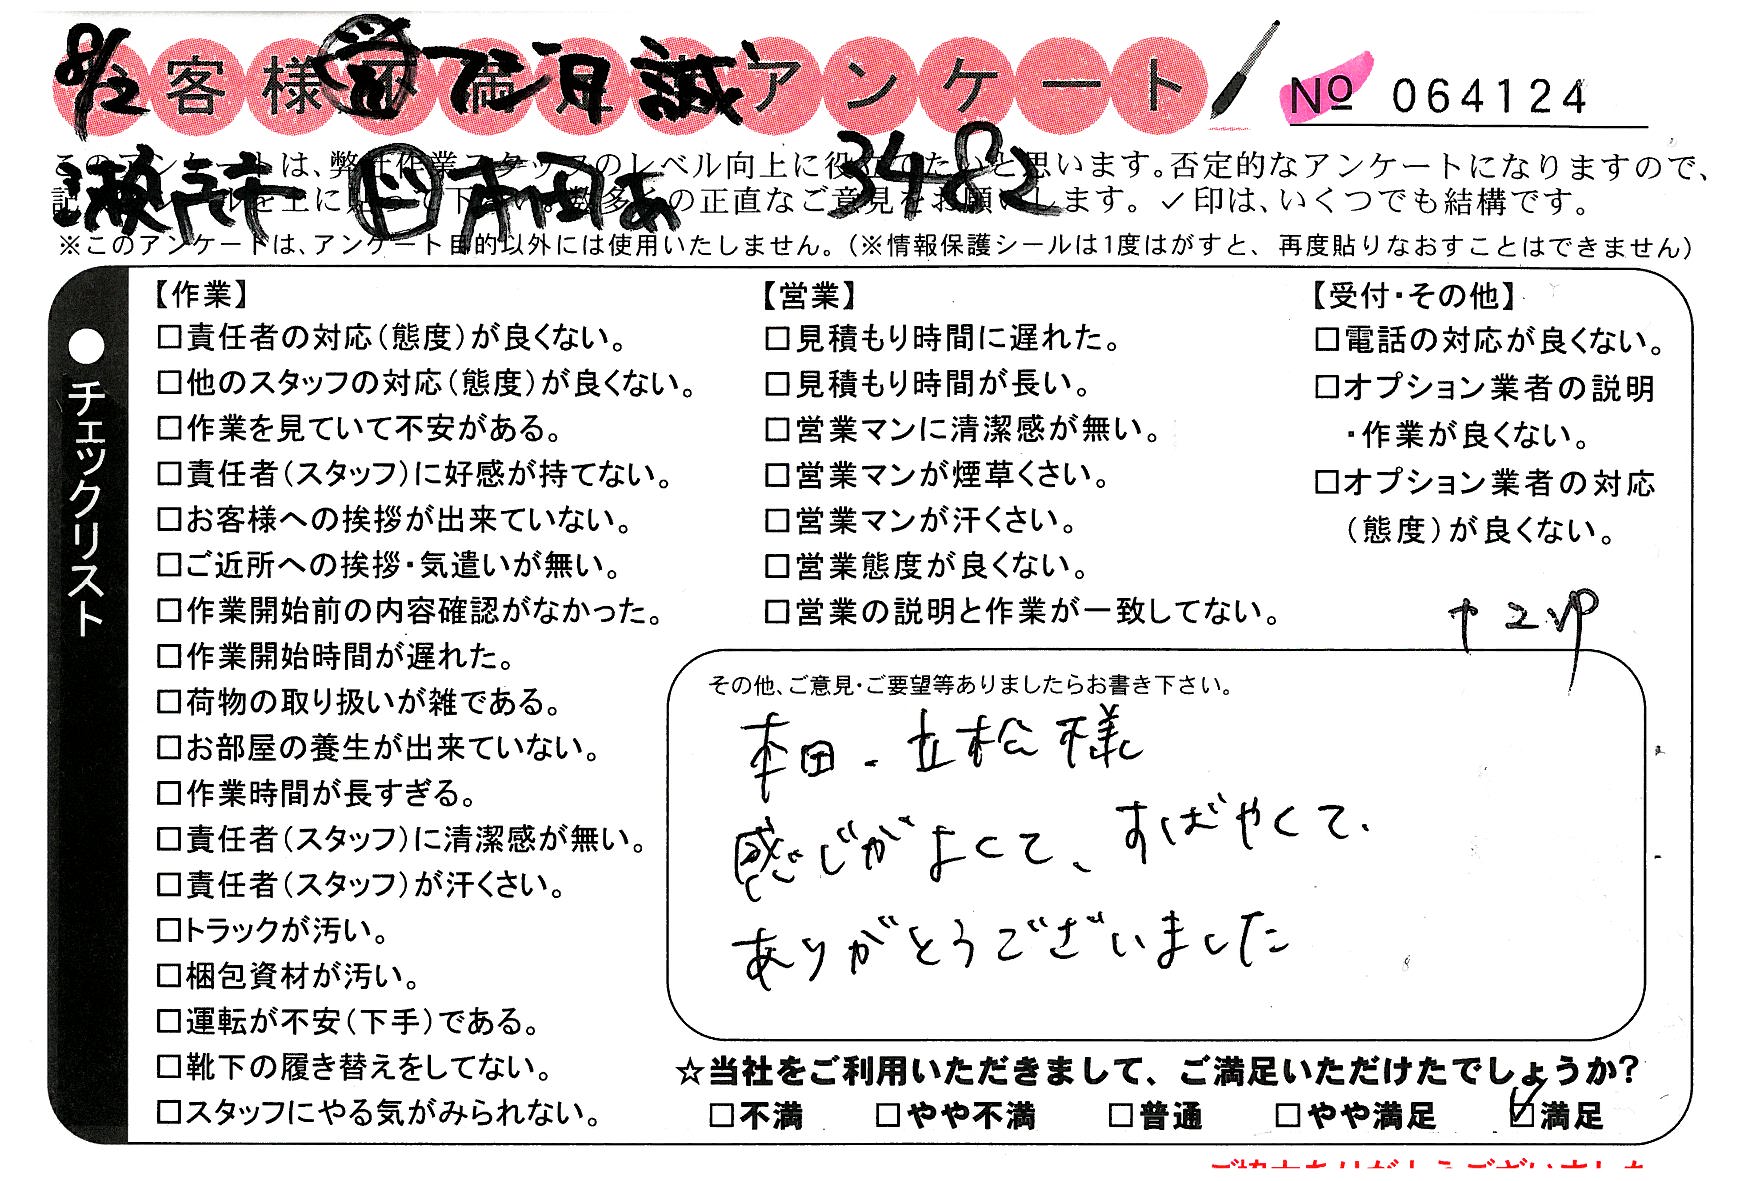 8/2
客様不満足アンケート
No 064124
3482
このアンケートは、弊社作業スタッフのレベル向上に役立てたいと思います。否定的なアンケートになりますので、
の正直なご意見をお願いします。✓印は、いくつでも結構です。
※このアンケートは、アンケート目的以外には使用いたしません。(※情報保護シールは1度はがすと、再度貼りなおすことはできません)
●チェックリスト
【作業】
□責任者の対応(態度)が良くない。
□他のスタッフの対応(態度)が良くない。
□作業を見ていて不安がある。
□責任者(スタッフ)に好感が持てない。
□お客様への挨拶が出来ていない。
□ご近所への挨拶・気遣いが無い。
□作業開始前の内容確認がなかった。
□作業開始時間が遅れた。
□荷物の取り扱いが雑である。
□お部屋の養生が出来ていない。
□作業時間が長すぎる。
□責任者(スタッフ)に清潔感が無い。
□責任者(スタッフ)が汗くさい。
□トラックが汚い。
□梱包資材が汚い。
□運転が不安(下手)である。
□靴下の履き替えをしてない。
□スタッフにやる気がみられない。
【営業】
□見積もり時間に遅れた。
□見積もり時間が長い。
□営業マンに清潔感が無い。
□営業マンが煙草くさい。
□営業マンが汗くさい。
□営業態度が良くない。
□営業の説明と作業が一致してない。
【受付・その他】
□電話の対応が良くない。
□オプション業者の説明
・作業が良くない。
□オプション業者の対応
(態度)が良くない。
その他、ご意見・ご要望等ありましたらお書き下さい。
本田・立松様
感じがよくて、すばやくて、
ありがとうございました
☆当社をご利用いただきまして、ご満足いただけたでしょうか?
□不満 □やや不満 □普通 □やや満足 ☑満足
ご協力ありがとうございました